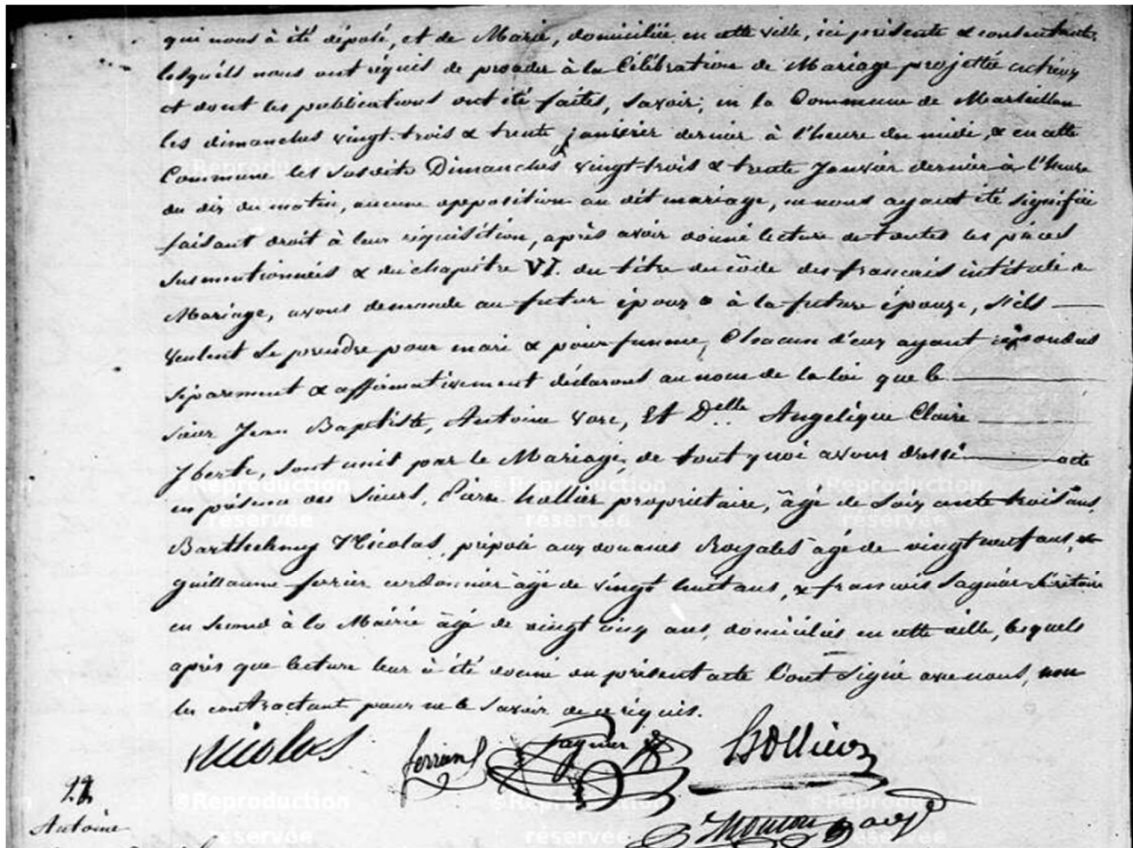 qui nous à été déposé, et de Marie, domiciliée en cette ville, ici présente & consentante
lesquels nous ont réquis de procéder à la Célébration de Mariage projetté entr'eux
et dont les publications ont été faites, Savoir; en la Commune de Marseillan
les dimanches vingt-trois & trente janvier dernier à l'heure du midi, & en cette
Commune les Susdits Dimanches vingt-trois & trente Janvier dernier à l'heure
du dix du matin, aucune opposition au dit mariage, ne nous ayant été signifiée
faisant droit à leur réquisition, après avoir donné lecture de toutes les pièces
Susmentionnées & du chapitre VI. du titre du côde des francais intitulé du
Mariage, avons demandé au futur époux & à la future épouze, S'ils
veulent Se prendre pour mari & pour femme, Chacun d'eux ayant répondus
séparement & affirmativement déclarons au nom de la loi que le
sieur Jean Baptiste, Antoine Vorc, Et Delle Angelique Claire
sont unis par le Mariage, de tout quoi avons dressé acte
en présence des Sieurs, Pierre hollier propriétaire, âgé de Soixante trois ans,
Barthelemy Nicolas, préposé aux douanes Royales âgé de vingt neuf ans, &
guillaume ferrier cordonnier âgé de vingt huit ans, & francois Saquier Sécrétaire
en Second à la Mairie âgé de vingt cinq ans, domiciliés en cette ville, lesquels
après que lecture leur à été donné du présent acte l'ont Signé avec nous, non
les contractant pour ne le Savoir de ce réquis.
Nicolas
hollier
Antoine
©Reproduction
réservée